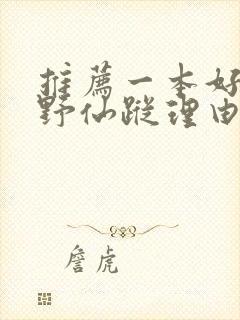 推薦一本好
野仙蹤理由
詹虎